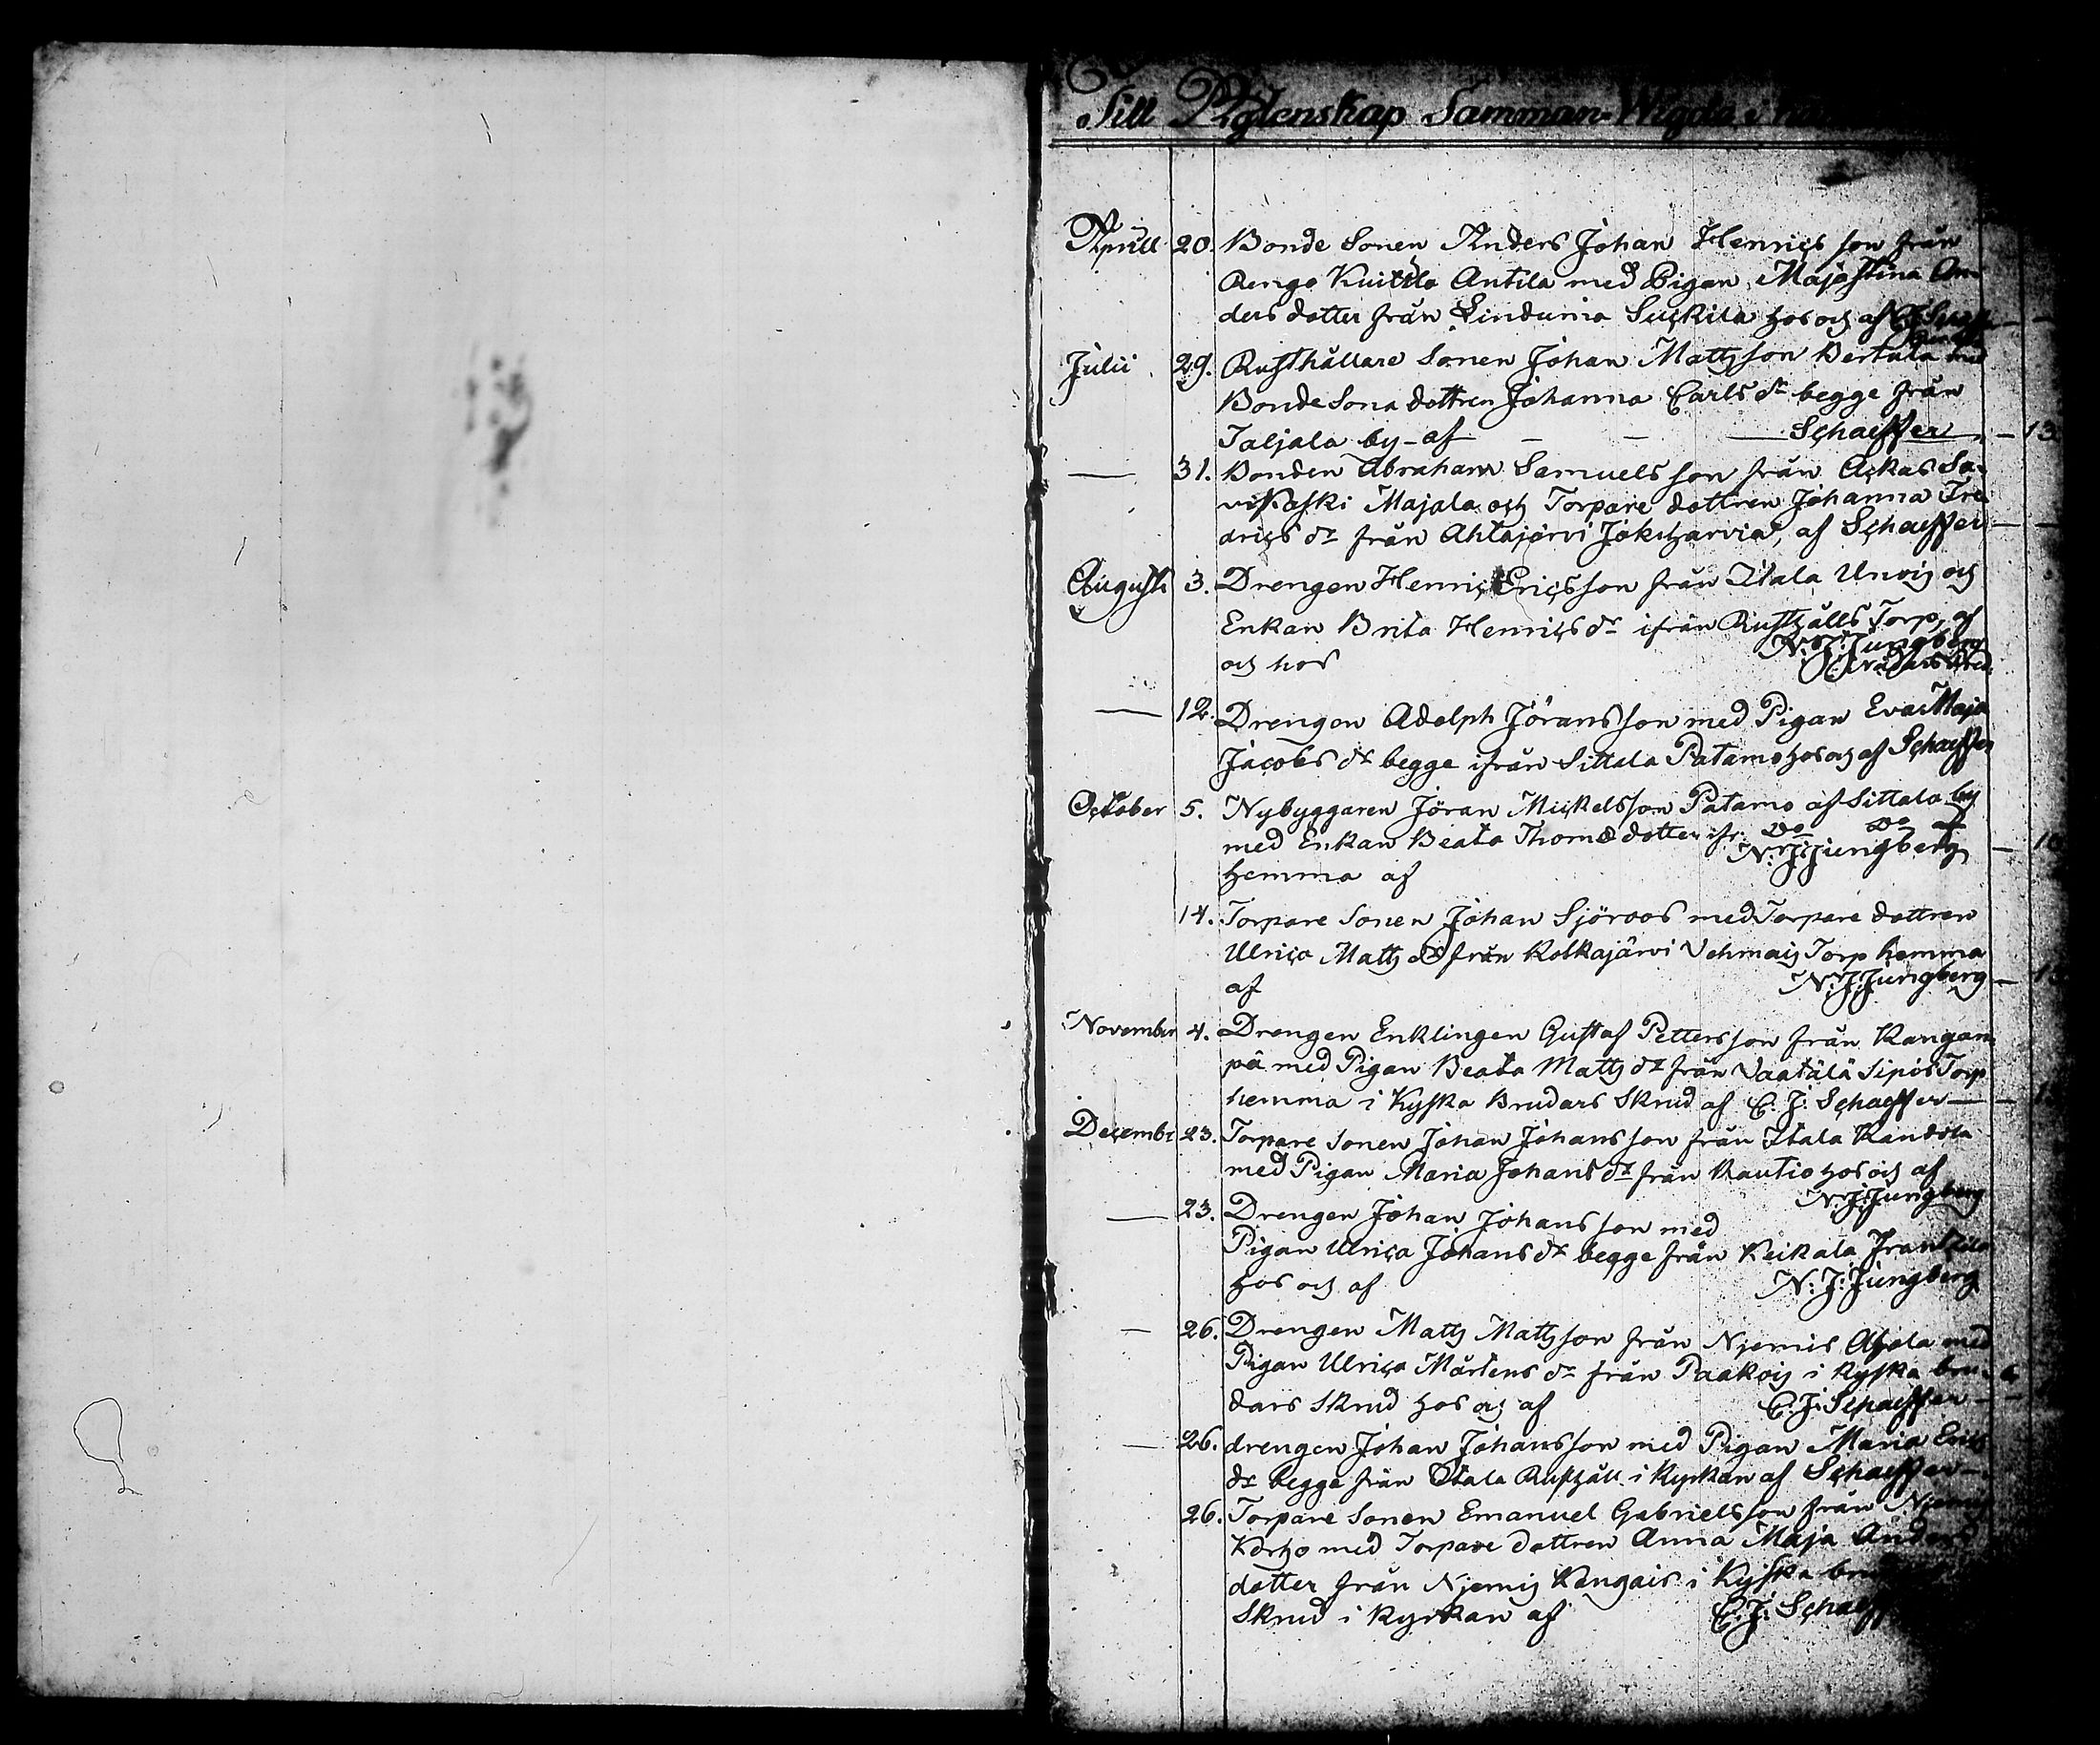 Till Ägtenskap Samman-Wigda i
Aprill 20. Bonde Sonen Anders Johan Henrics son från
Rengo Kuittila Antila med Pigan Majastina An-
ders dotter från Linduma Suckila hos och af
Julii 29. Rusthållare Sonen Johan Mattsson Bertula med
Bonde Sona dottren Johanna Carls dr begge från
Taljala by - af - - Schaeffer - 13
— 31. Bonden Abraham Samuels son från Ackas Sa-
Majala och Torpare dottren Johanna Fre-
drics dr från Ahtajärvi af Schaeffer — —
Augusti 3. Drengen Henric Ericsson från Itala Unoig och
Enkan Brita Henrics dr ifrån Rusthålls Torp, af
och hos N: J: Jungberg
— 12. Drengen Adolph Jöransson med Pigan Eva Maja
Jacobs dr begge ifrån Sittala Patamo hos och af Schaeffer
October 5. Nybyggaren Jöran Mickelsson Patamo af Sittala by
med Enkan Beata Thomæ dotter ifr. Do Do
hemma af N: J: Jungberg — 10
14. Torpare Sonen Johan Sjöroos med Torpare dottren
Ulrica Matts dr från Kolkajärvi Vehmais Torp hemma
af N: J: Jungberg — 13
November 4. Drengen Enklingen Gustaf Pettersson från Kangan-
pä med Pigan Beata Matts dr från Vaatälä Sipos Torp
hemma i Kyrka Brudars Skrud af C. J. Schaeffer —
Decembr 23. Torpare Sonen Johan Johansson från Itala Kandola
med Pigan Maria Johans dr från Rautio hos och af
N: J: Jungberg
— 23. Drengen Johan Johansson med
Pigan Ulrica Johans dr begge från Keikala Frantzila
hos och af N: J: Jungberg
— 26. Drengen Matts Mattsson från Njemis med
Pigan Ulrica Mårtens dr från Paakois i Kyrka bru-
dars Skrud hos och af C. J. Schaeffer —
— 26. drengen Johan Johansson med Pigan Maria Erics
dr begge från Itala Rusthåll i Kyrkan af Schaeffer —
26. Torpare Sonen Emanuel Gabrielsson från
Korho med Torpare dottren Anna Maja Anders
dotter från Njemis Kangais i Kyrka
Skrud i Kyrkan af C. J.